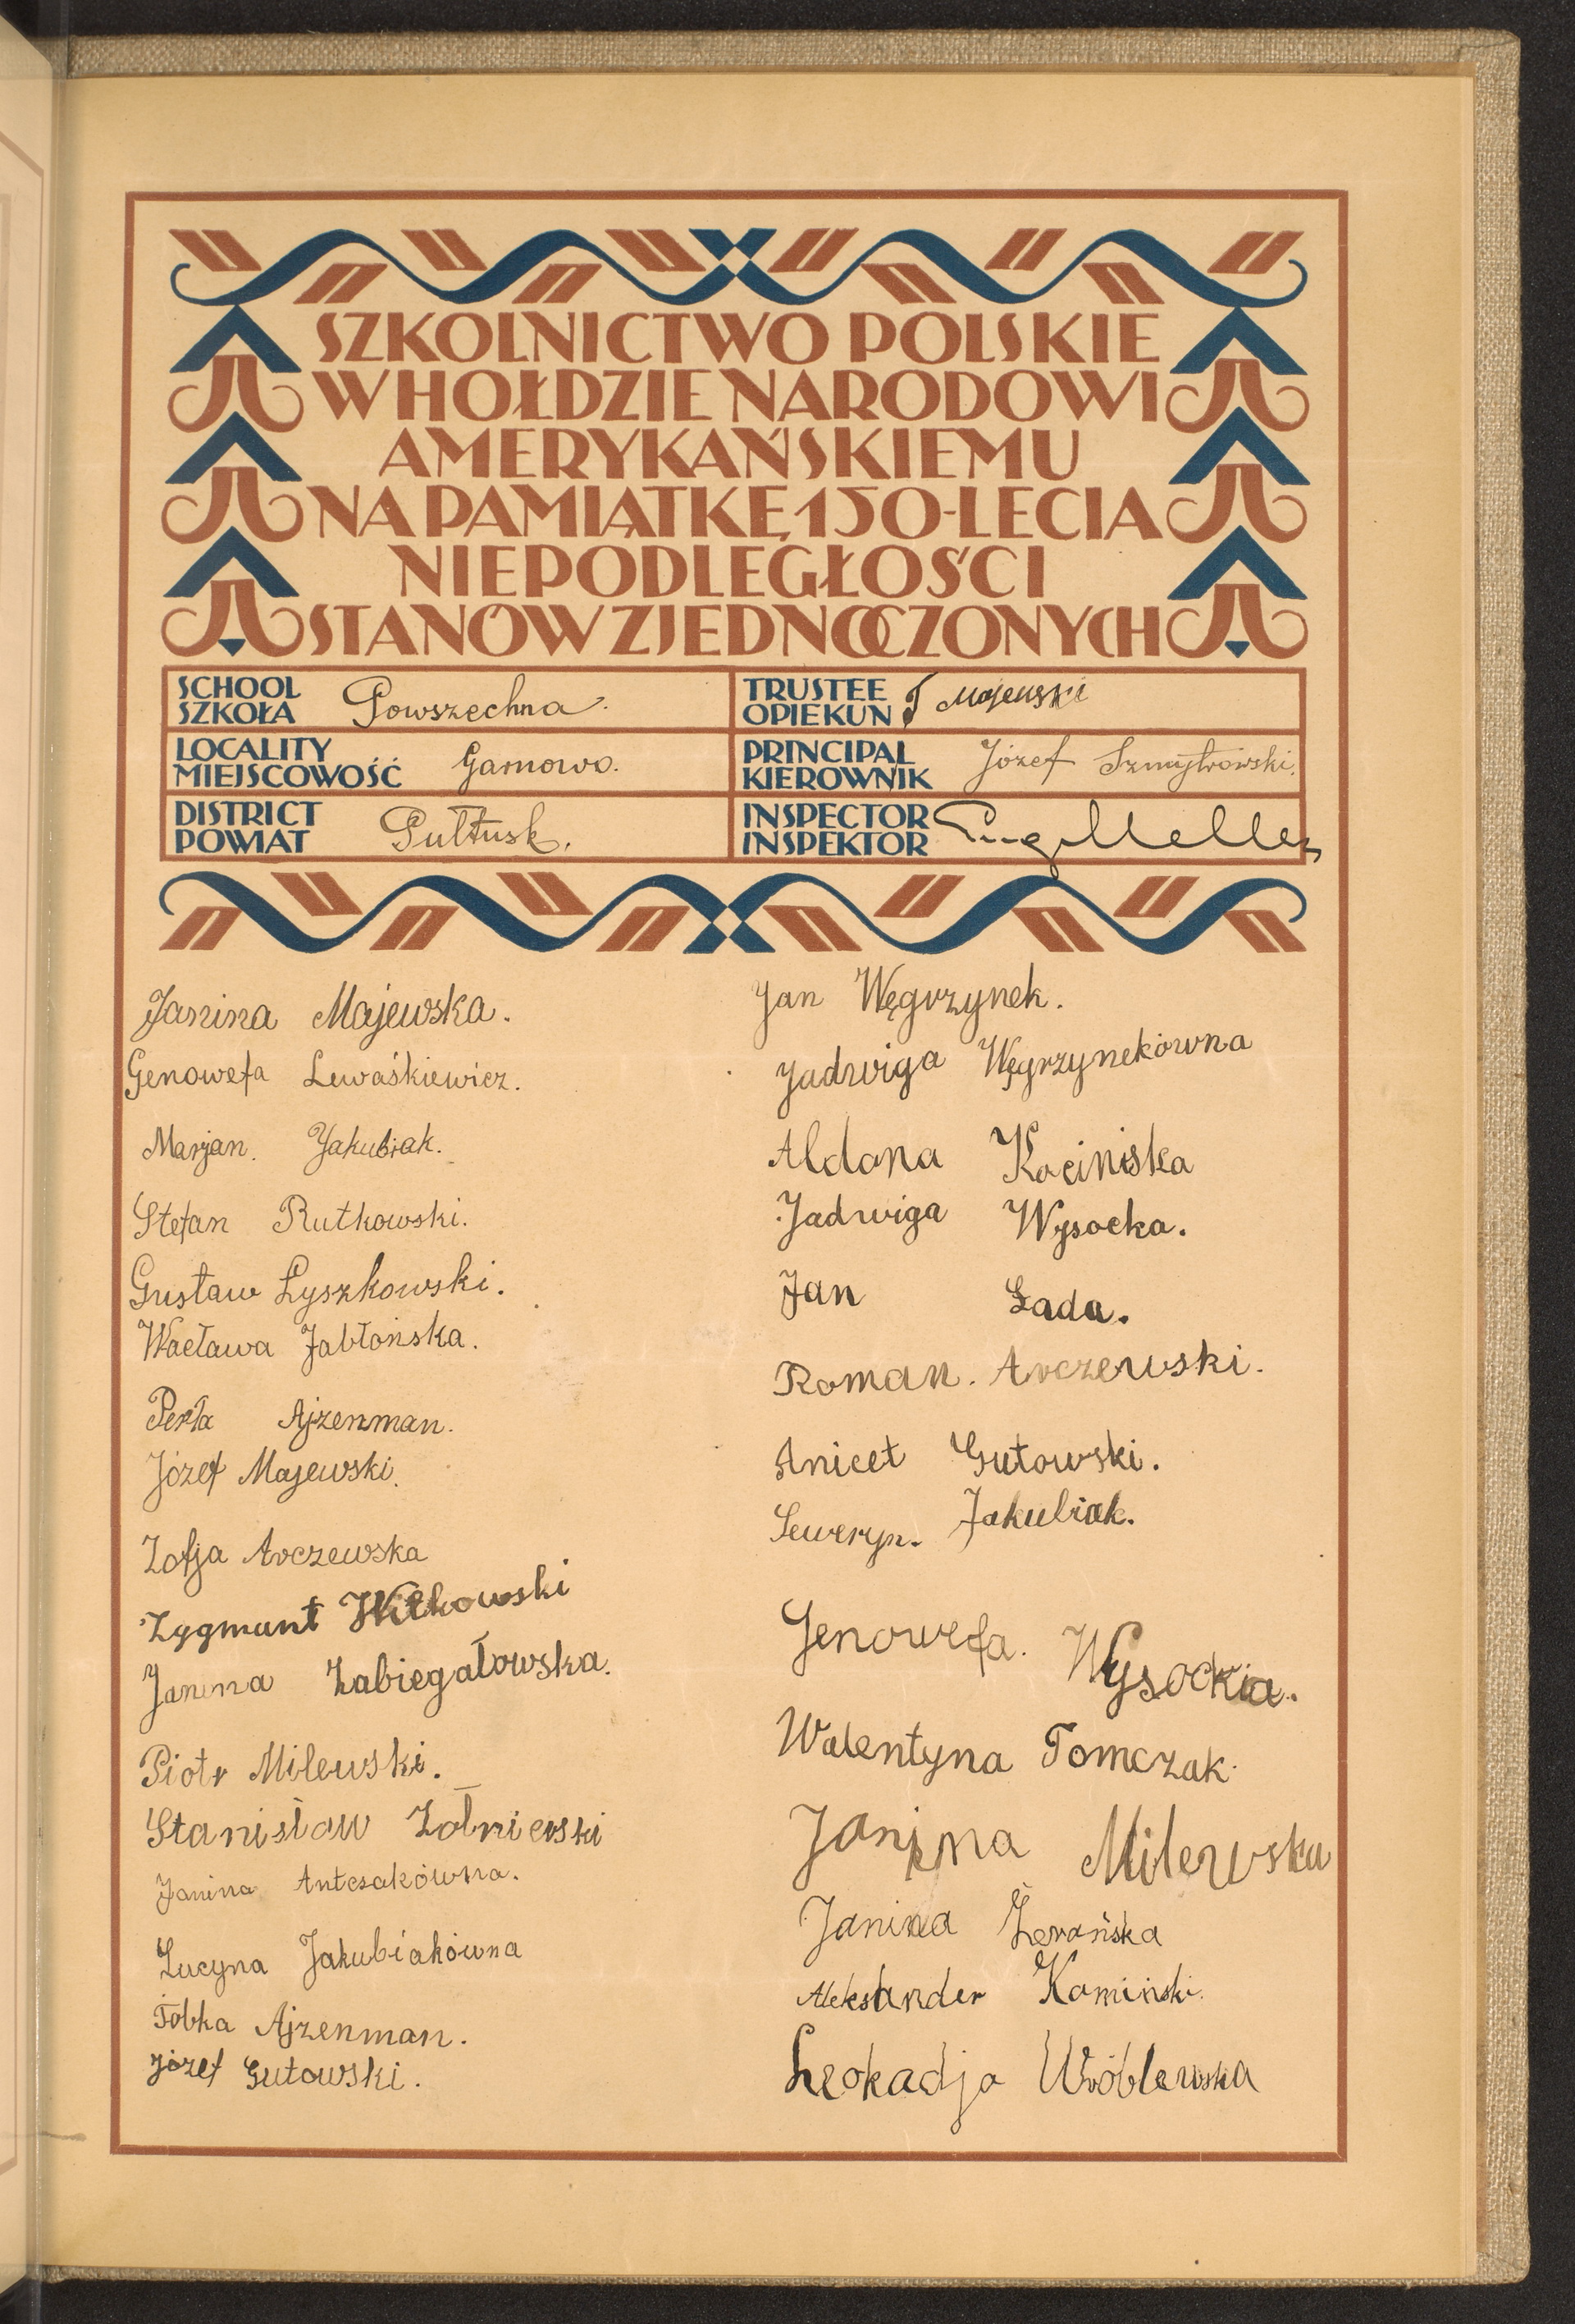 SZKOLNICTWO POLSKIE
W HOŁDZIE NARODOWI
AMERYKAŃSKIEMU
NA PAMIĄTKĘ 150-LECIA
NIEPODLEGŁOŚCI
STANÓW ZJEDNOCZONYCH
SCHOOL
SZKOŁA
Powszechna.
TRUSTEE
OPIEKUN
Majewski
LOCALITY
MIEJSCOWOŚĆ
Garnowo.
PRINCIPAL
KIEROWNIK
Józef Szmytrowski.
DISTRICT
POWIAT
Pułtusk.
INSPECTOR
INSPEKTOR
Janina Majewska.
Genowefa Lewaśkiewicz.
Marjan. Jakubiak.
Stefan Rutkowski.
Gustaw Łyszkowski.
Wacława Jabłońska.
Perła Ajzenman.
Józef Majewski.
Zofja Arczewska
Zygmunt Witkowski
Janina Zabiegałowska.
Piotr Milewski.
Stanisław Żołnierski
Janina Antczakówna.
Lucyna Jakubiakówna
Tobka Ajzenman.
Józef Gutowski.
Jan Węgrzynek.
Jadwiga Węgrzynekówna
Aldona Kocińska
Jadwiga Wysocka.
Jan Łada.
Roman. Arczewski.
Anicet Gutowski.
Seweryn. Jakubiak.
Genowefa. Wysocka.
Walentyna Tomczak.
Janina Milewska
Janina Żerańska
Aleksander Kamiński.
Leokadja Wróblewska